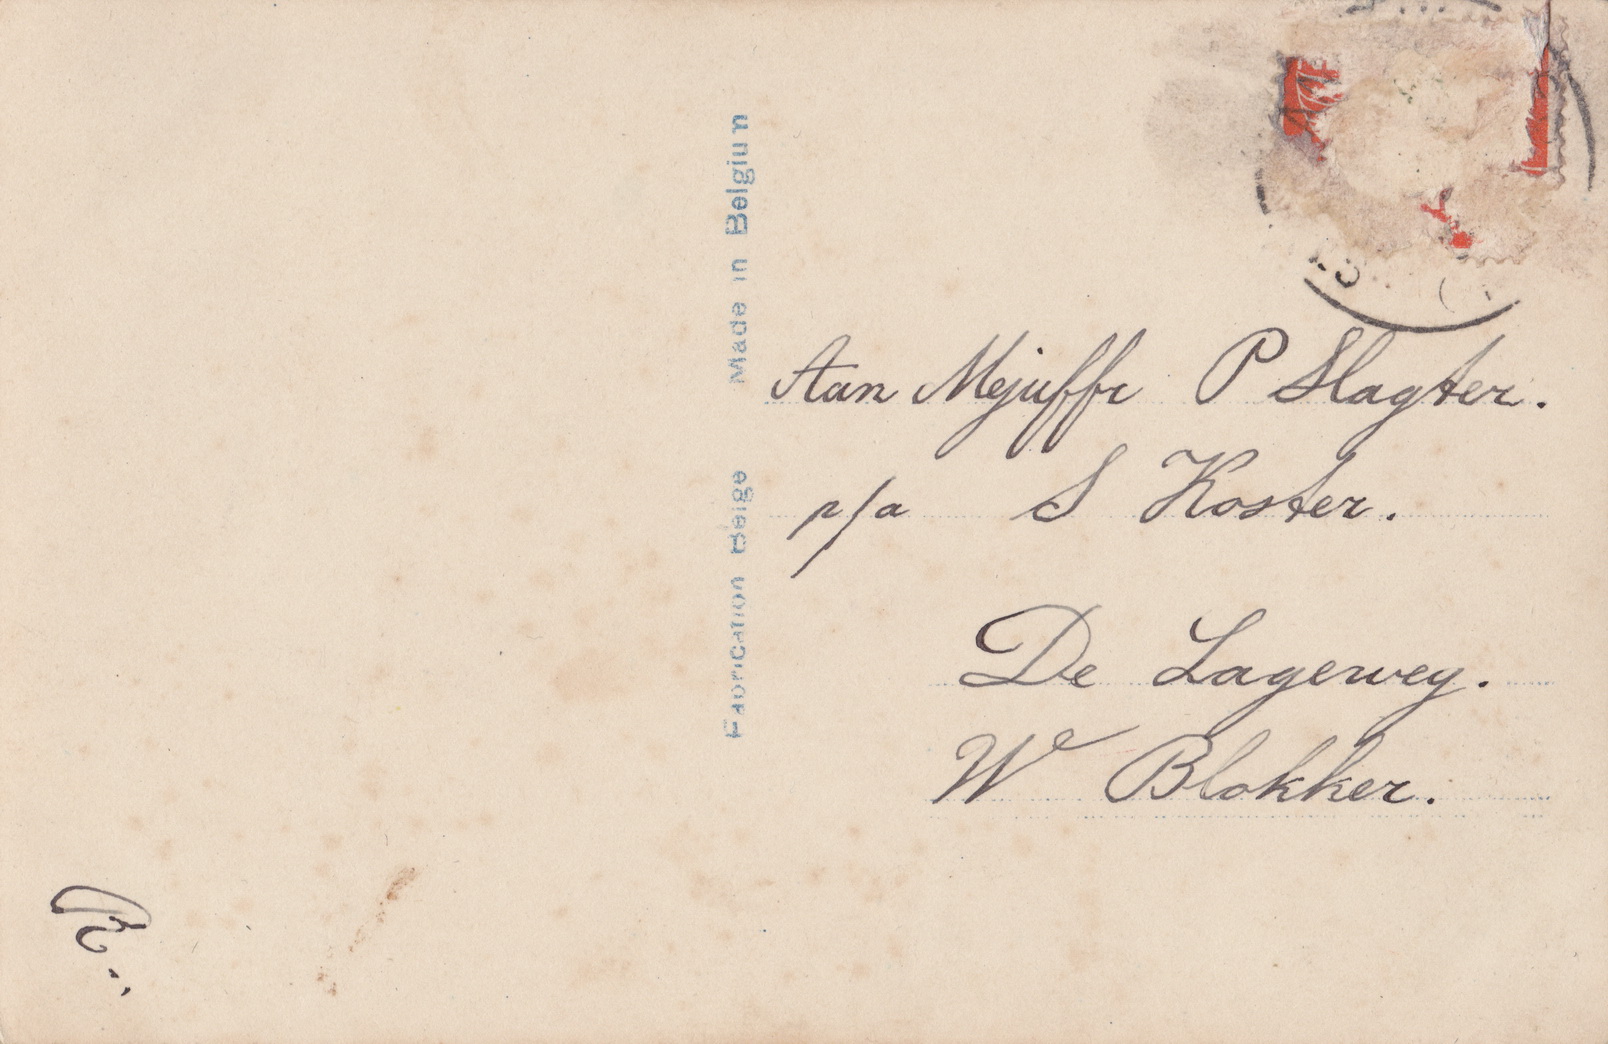 Fabrication Belge Made in Belgium
Aan Mejuffr P Slagter.
p/a S Koster.
De Lageweg.
We Blokker.